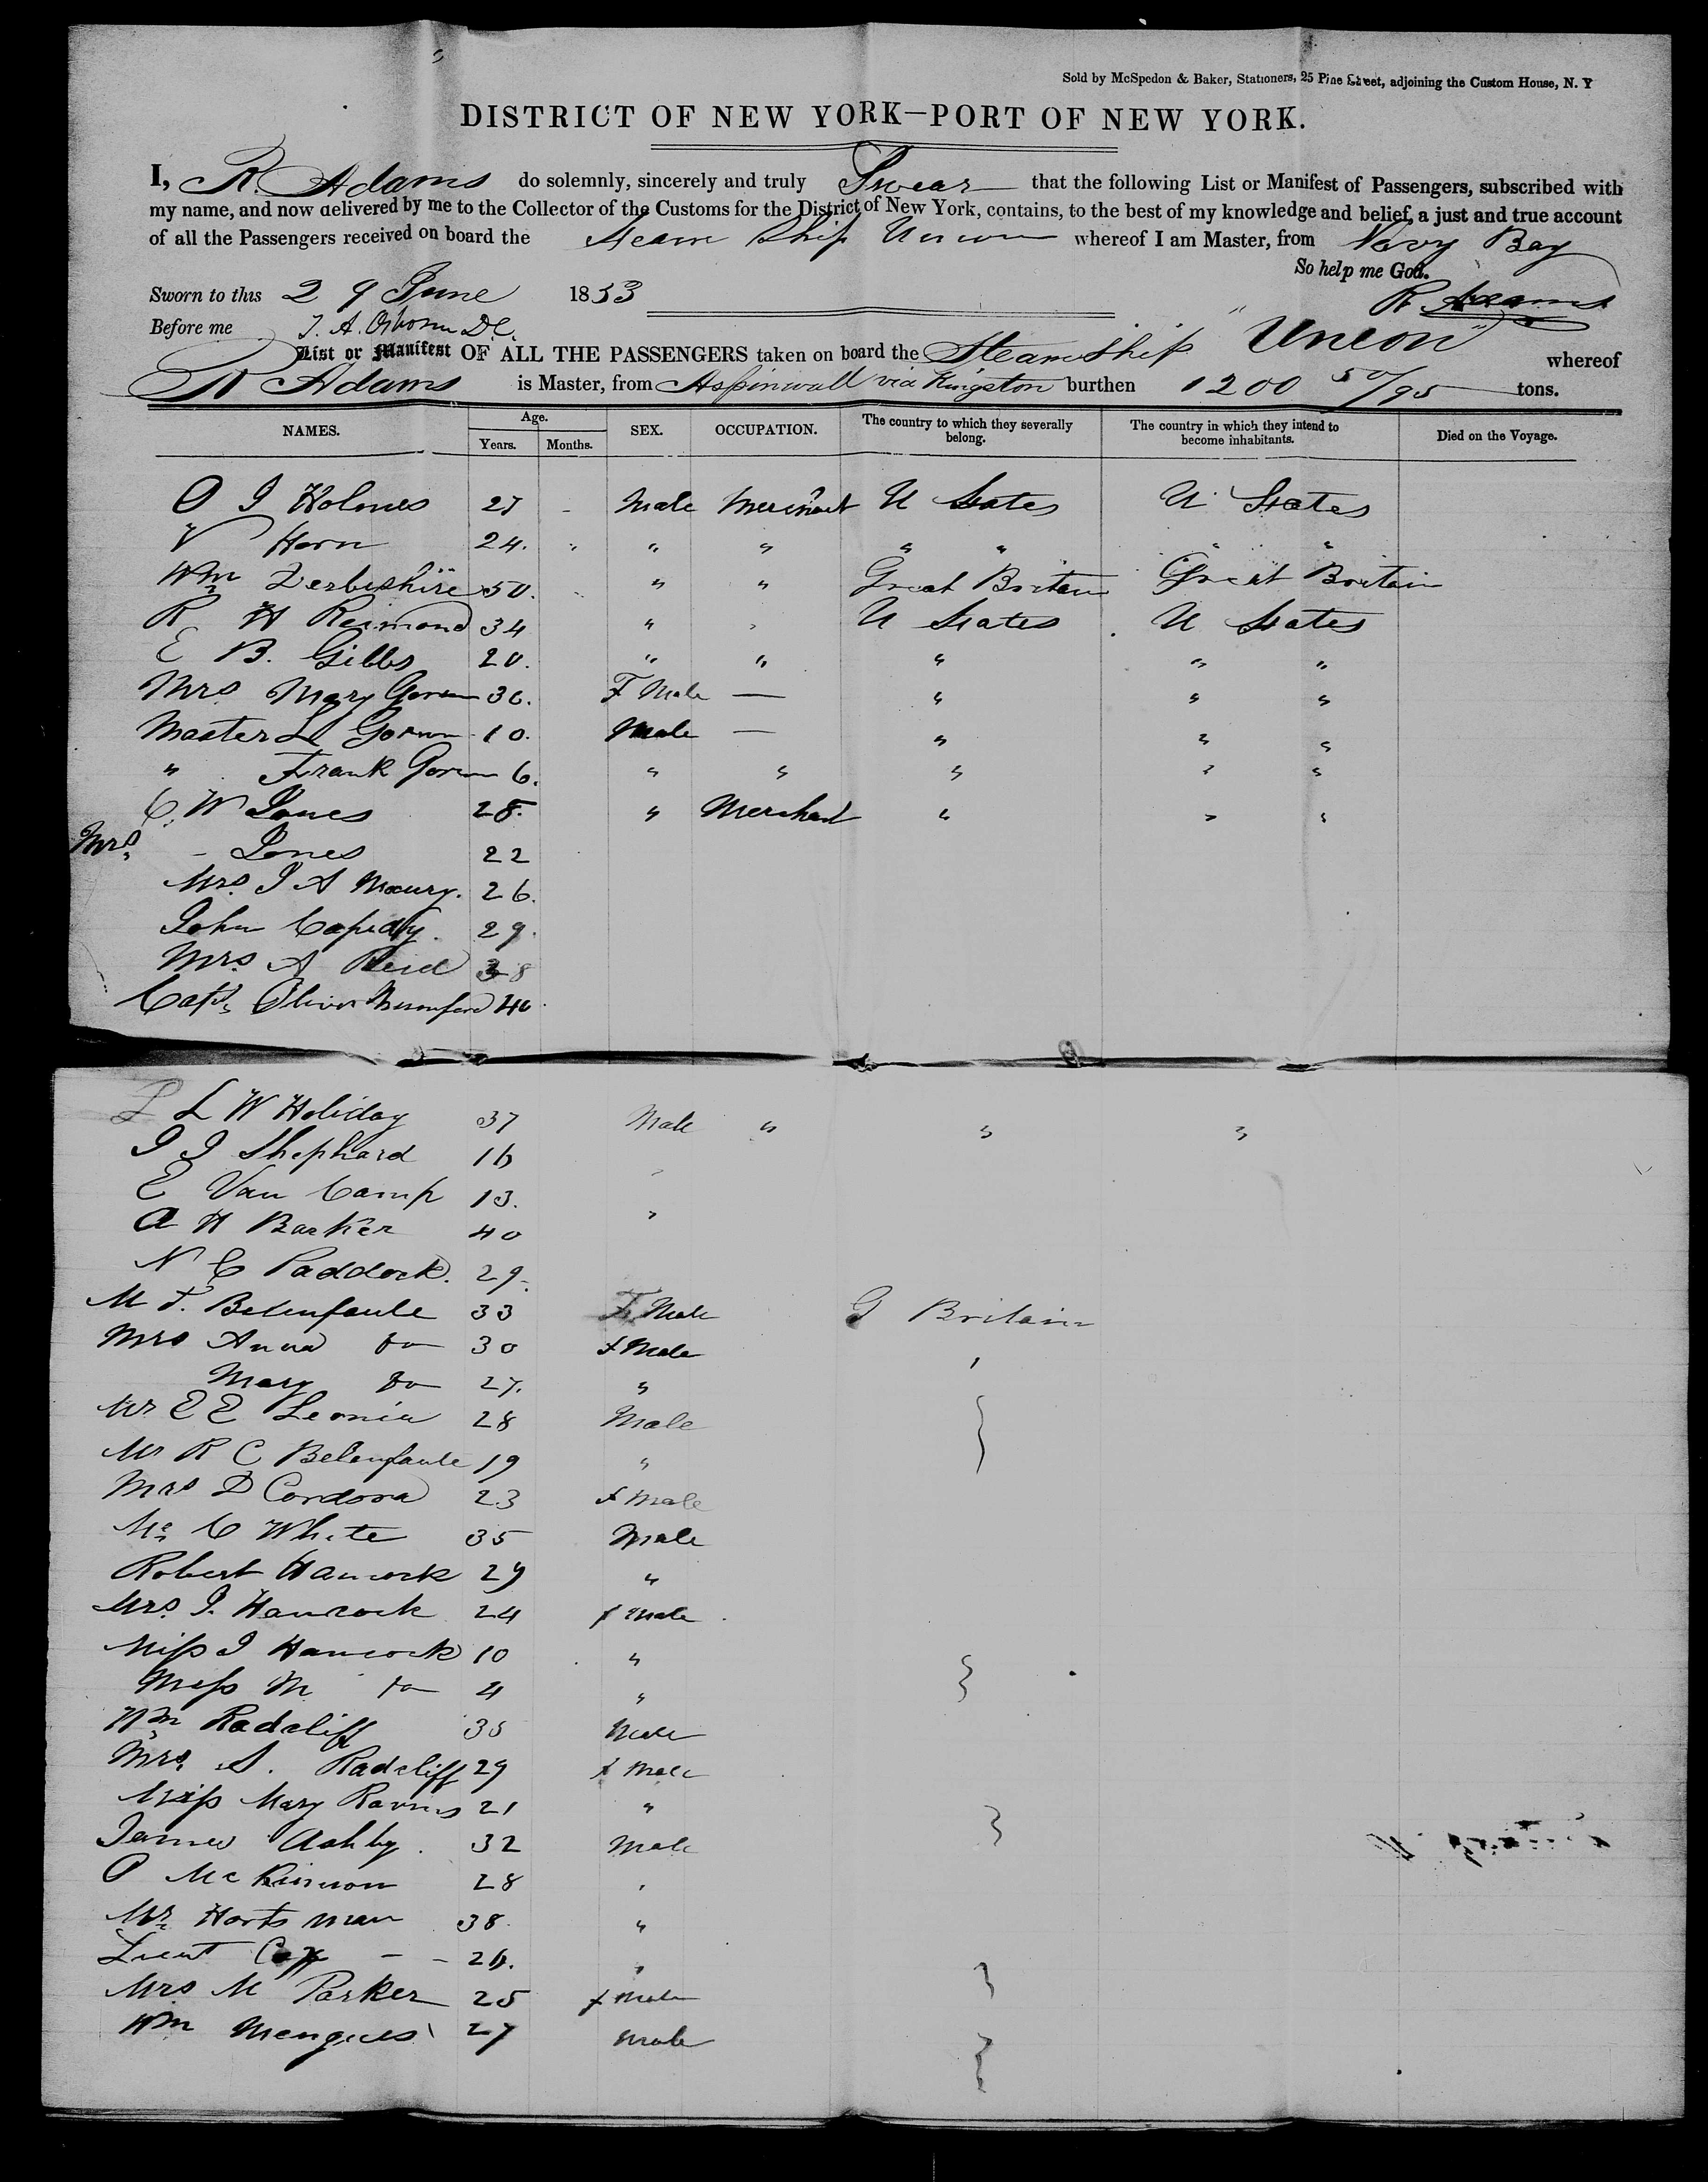 Sold by McSpedon & Baker, Stationers, 25 Pine Street, adjoining the Custom House, N. Y
DISTRICT OF NEW YORK—PORT OF NEW YORK.
I, R. Adams do solemnly, sincerely and truly Swear that the following List or Manifest of Passengers, subscribed with
my name, and now delivered by me to the Collector of the Customs for the District of New York, contains, to the best of my knowledge and belief, a just and true account
of all the Passengers received on board the Steam Ship Union whereof I am Master, from Navy Bay
So help me God.
Sworn to this 29 June 1853 R. Adams
Before me J. A. Osborn D.C.
List or Manifest OF ALL THE PASSENGERS taken on board the Steam Ship "Union" whereof
R Adams is Master, from Aspinwall via Kingston burthen 1200 50/95 tons.
NAMES. Age. Years. Months. SEX. OCCUPATION. The country to which they severally belong. The country in which they intend to become inhabitants. Died on the Voyage.
O J Holmes - Male Merchant U States U States
V Horn 24. " " " " " " "
Wm Derbishire 50. " " Great Britain Great Britain
R H Reimond 34 " " U States U States
E B. Gibbs 20. " " " " "
Mrs Mary Gorum 36. F Male — " " "
Master L Gorum 10. Male — " " "
" Frank Gorum 6. " " " " "
C. W Jones 28. " Merchant " " "
Mrs. - Jones 22
Mrs. J A Maury. 26.
John 29.
Mrs. A Reid 38
Capt. Oliver Mumford 40
L L W Holiday 37 Male " " "
J J Shephard 16 "
E Van Camp 13. "
A H Barker 40
N C Paddock. 29.
M F. Belenfaule 33 F Male G Britain
Mrs Anna do 30 F Male "
Mary do 27. "
Mr E E Leonia 28 Male
Mr R C Belenfaule 19 "
Mrs D Cordova 23 F Male
Mr. C White 35 Male
Robert Hancock 29 "
Mrs. J. Hancock 24 F Male
Miss J Hancock 10 "
Miss M do 4 "
Wm Radcliff 35 Male
Mrs. S. Radcliff 29 F Male
Miss Mary 21 "
James Ashby. 32 Male
P McKinnon 28 "
Mr. Hartsman 38. "
Lieut - - 26. "
Mrs M Parker 25 F Male
Wm Mengues 27 Male